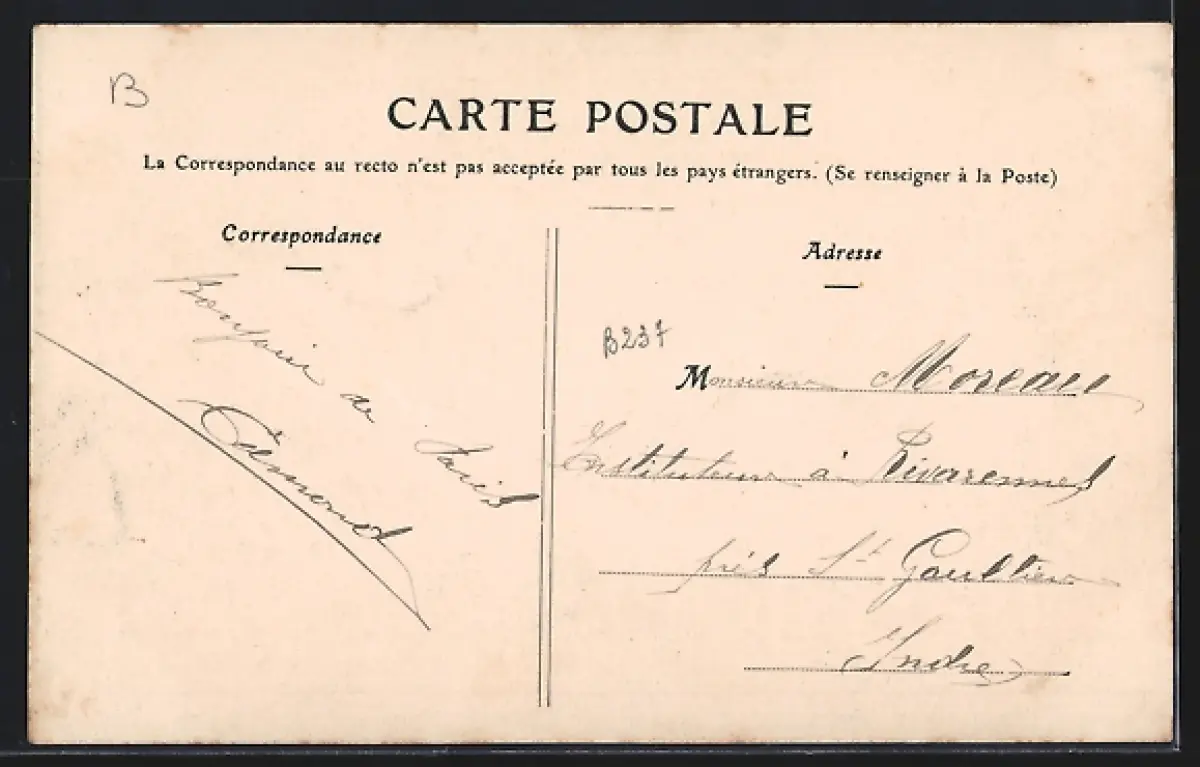 B
CARTE POSTALE
La Correspondance au recto n'est pas acceptée par tous les pays étrangers. (Se renseigner à la Poste)
Correspondance
Bonjour de
Paris
Edmond
Adresse
B237
Monsieur Moreau
Instituteur à Rivarennes
près St Gaultier
(Indre)